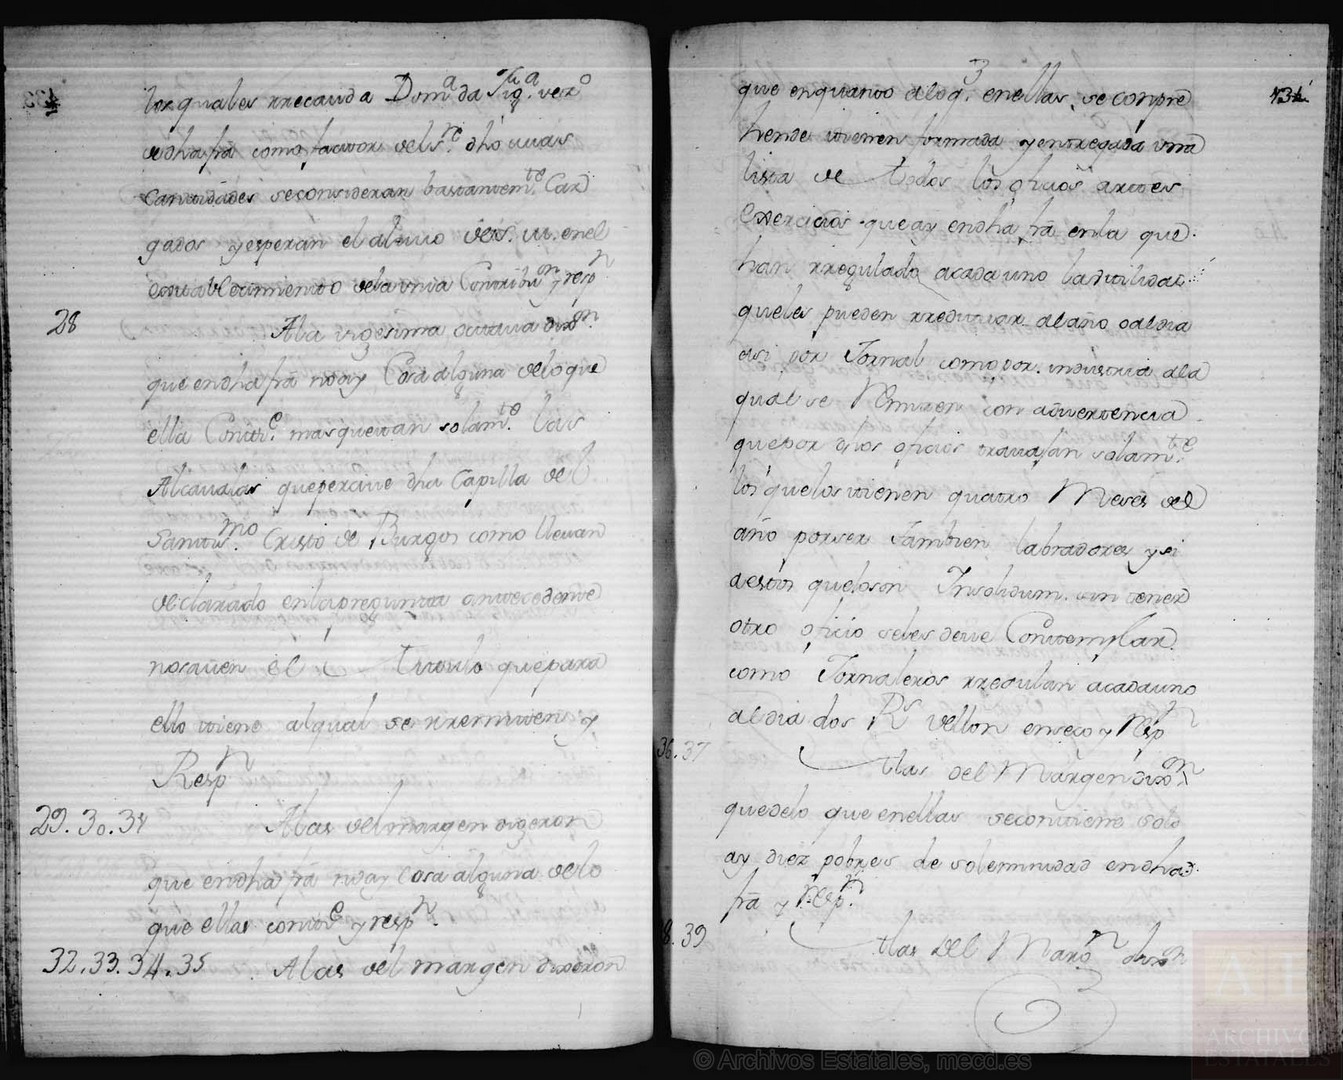 los quales rrecauda Domª. da Figª. vezº
de dha frª como factor del Sr. dho cuias
cantidades se consideran bastantemte. Car
gados y esperan el aliuio de S. M. en el
establecimiento de la vnia Contribn y respn
28 Ala vigesima octaua dixon.
que en dha frª no ay Cosa alguna de lo que
ella Contiee. mas que tan solamte. las
Alcaualas que perciue dha Capilla del
Santismo. Cristo de Burgos como lleuan
declarado en la pregunta antecedente
no sauen el titulo que para
ello tiene al qual se rremiten y
Respn
29. 30. 31 Alas del margen digeron
que en dha frª no ay Cosa alguna de lo
que ellas contiee y respn.
32. 33. 34. 35 Alas del margen dixeron
que en quanto a lo q. en ellas se conpre
hende tienen formada y entregada vna
lista de todos los oficios artes
Exercicios que ay en dha frª en la que
han rregulado a cada uno la vtilidad
que les pueden rredituar al año o al dia
asi por Jornal como por industria a la
qual se Rmiten con aduertencia
que por dhos oficios trauajan solamte
los que los tienen quatro Meses del
año por ser tambien labradores y si
destos que lo son Insolidum sin tener
otro oficio se les deue Contemplar
como Jornaleros rregulan a cada uno
al dia dos Rs vellon en seco y Respn
36. 37 Alas del Margen dixon
que de lo que en ellas se contiene solo
ay diez pobres de solemnidad en dha
frª y Respn.
8. 39 Alas del Margn dixon
© Archivos Estatales, mecd.es
AE
ARCHIVOS
ESTATALES